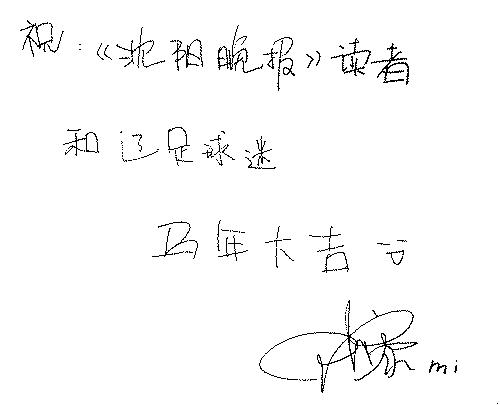 祝：《沈阳晚报》读者
和辽足球迷
马年大吉
mi